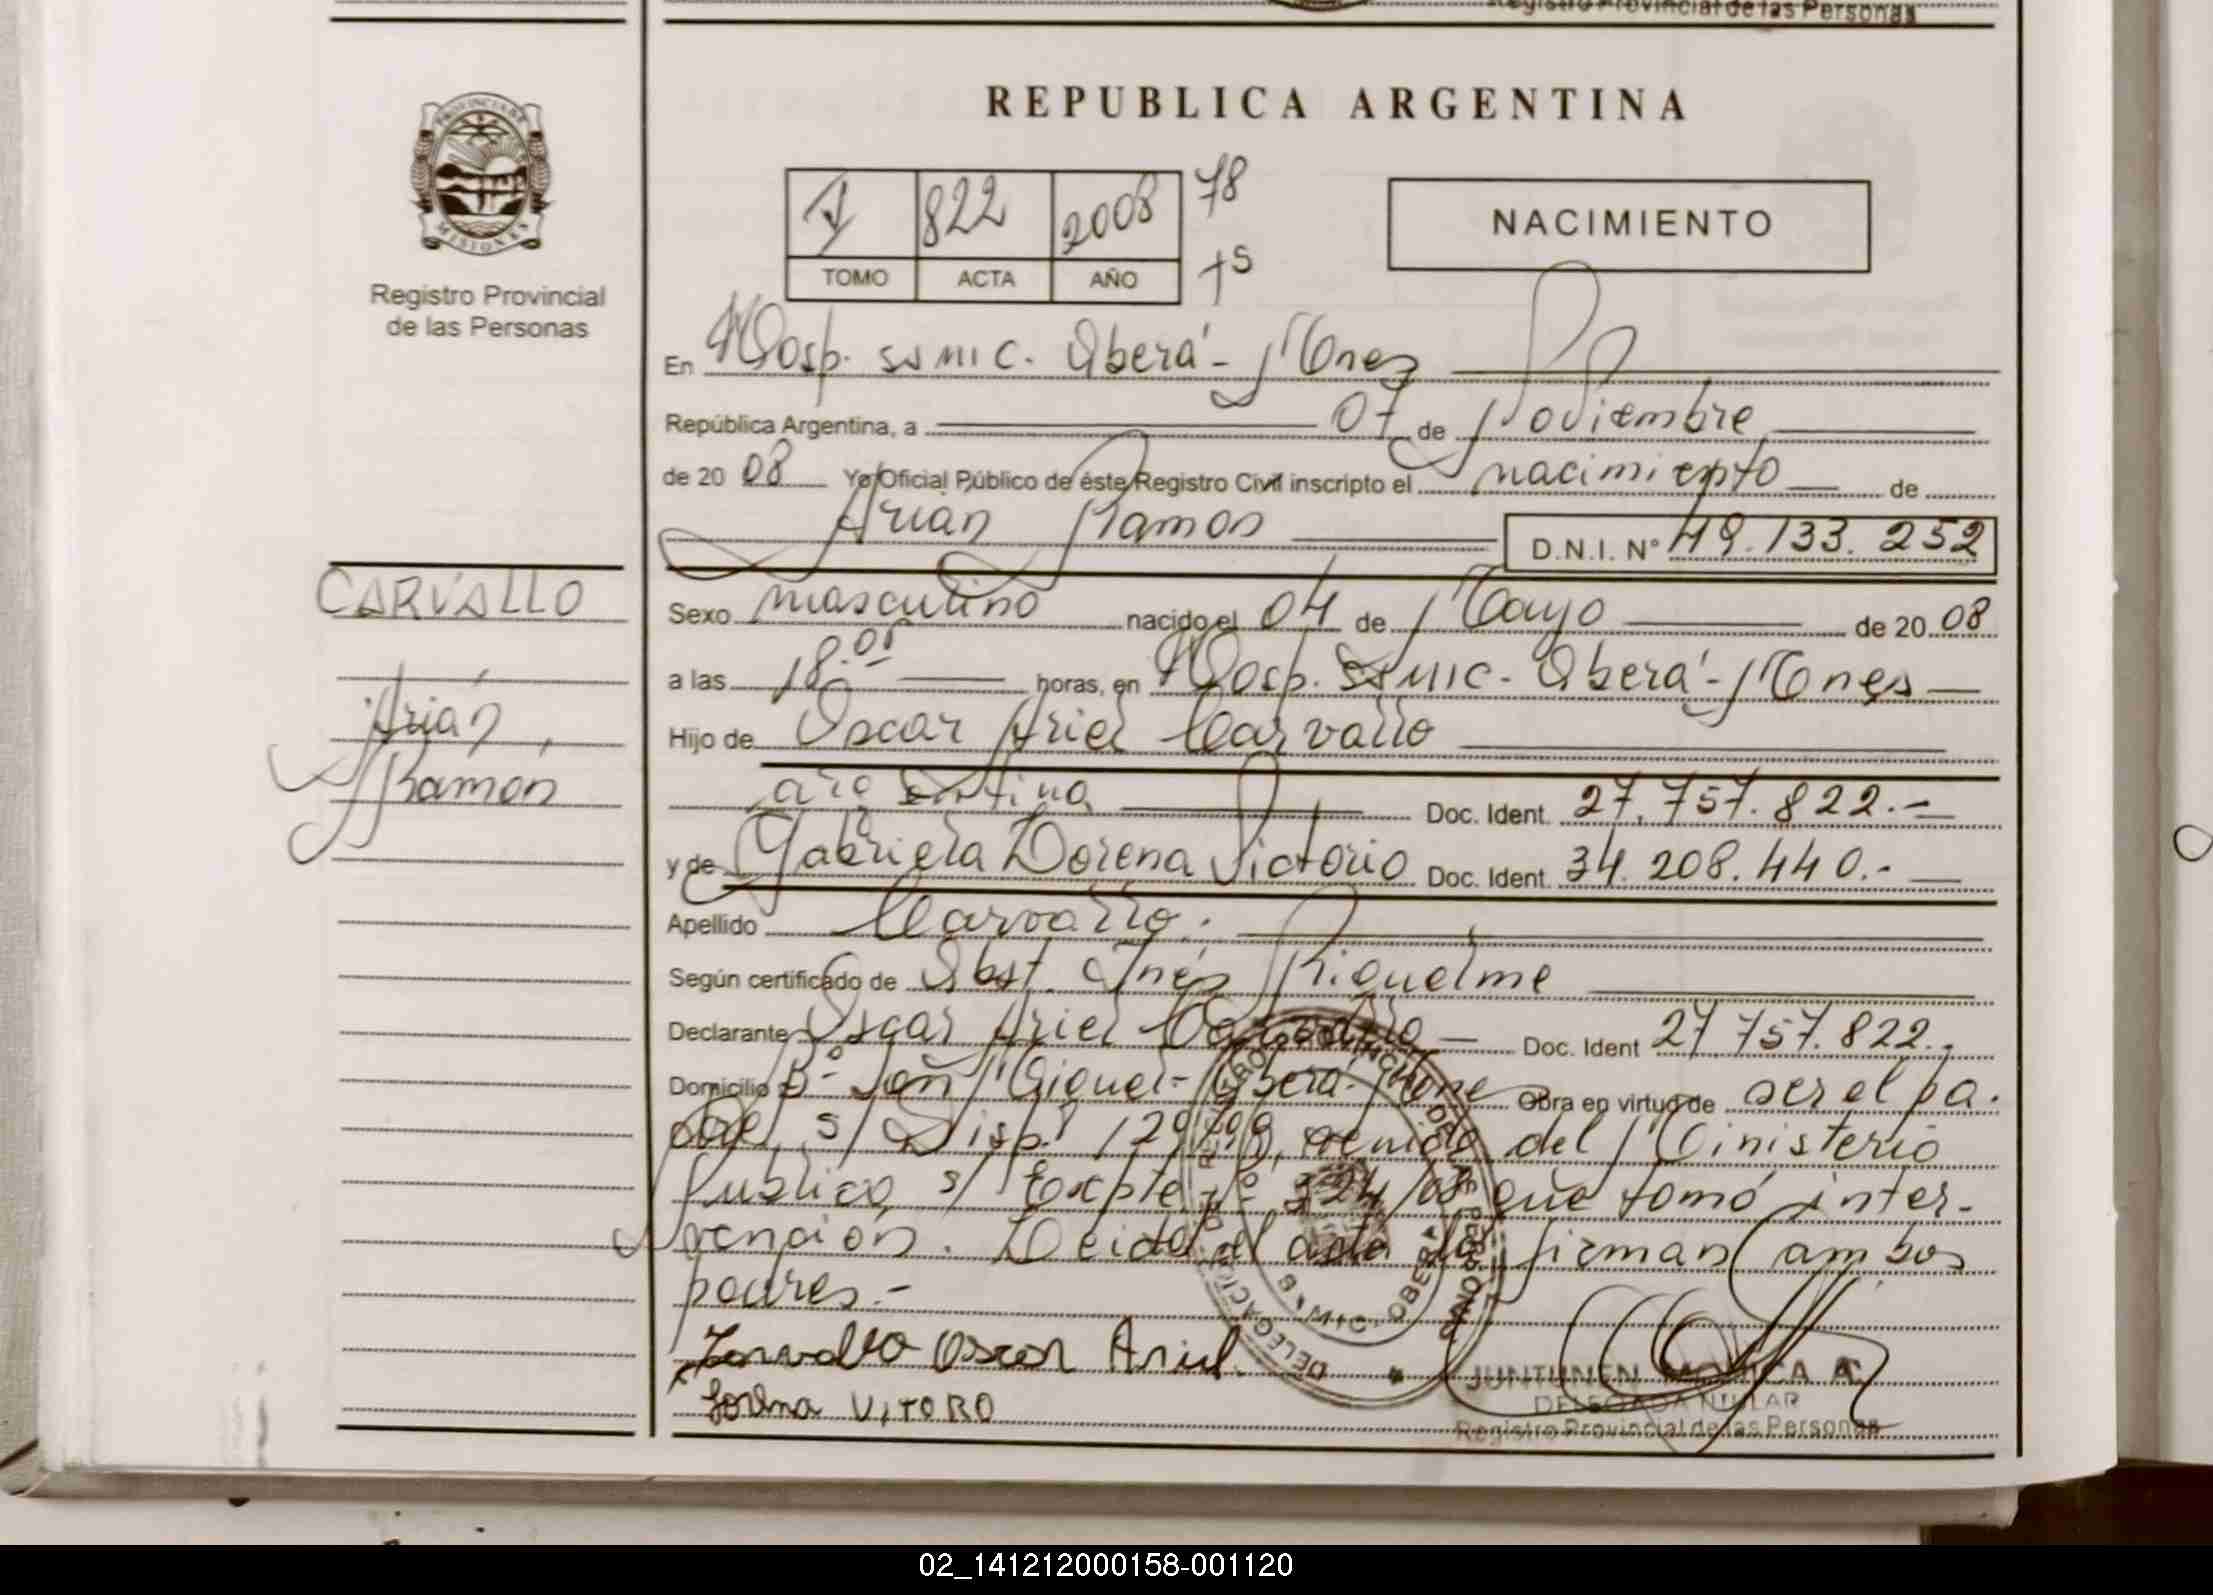 Registro Provincial de las Personas
REPUBLICA ARGENTINA
PROVINCIA DE
MISIONES
Registro Provincial
de las Personas
822 2008 78
TOMO ACTA AÑO 75
NACIMIENTO
En Hosp. SSMIC. Oberá - Mnes
República Argentina, a 07 de Noviembre
de 20 08 Yo Oficial Público de éste Registro Civil inscripto el nacimiento de
Arian Ramon D.N.I. N° 49.133.252
CARVALLO
Arián,
Ramón
Sexo masculino nacido el 04 de Mayo de 20 08
a las 18.05 horas, en Hosp. SSMIC - Oberá - Mnes
Hijo de Oscar Ariel Carvallo
argentina Doc. Ident. 27.757.822.-
y de Gabriela Lorena Victorio Doc. Ident. 34.208.440.-
Apellido Carvallo.
Según certificado de Obst. Inés Riquelme
Declarante Oscar Ariel Carvallo Doc. Ident 27 757.822.
Domicilio B° San Miguel - Oberá - Mnes Obra en virtud de ser el pa.
dre, s/ Disp. 129/08, venida del Ministerio
Publico, s/ Expte 324/08 que tomó inter-
vención. Leida el acta la firman ambos
padres.-
Carvallo Oscar Ariel.
Lorena VITORO
JUNTUNEN MONICA A.
DELEGADA TITULAR
Registro Provincial de las Personas
02_141212000158-001120